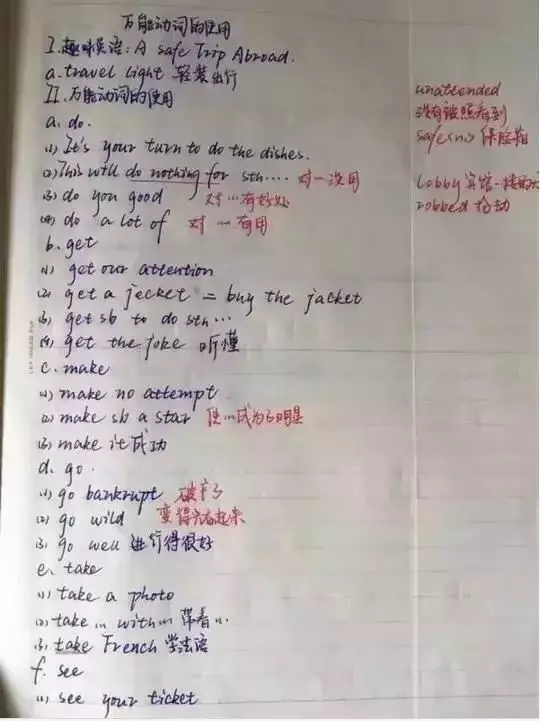 万能动词的使用
I.趣味英语: A safe Trip Abroad.
a. travel light 轻装出行
II.万能动词的使用
a. do.
(1) It's your turn to do the dishes.
(2) This will do nothing for sth.... 对…没用
(3) do you good 对…有好处
(4) do a lot of 对…有用
b. get
(1) get our attention
(2) get a jecket = buy the jacket
(3) get sb to do sth...
(4) get the joke 听懂
c. make
(1) make no attempt
(2) make sb a star 使…成为了明星
(3) make it 成功
d. go.
(1) go bankrupt 破产了
(2) go wild 变得兴奋起来
(3) go well 进行得很好
e. take
(1) take a photo
(2) take … with … 带着…
(3) take French 学法语
f. see
(1) see your ticket
unattended
没有被照看到
safe <n.> 保险箱
Lobby 宾馆一楼的
robbed 抢劫